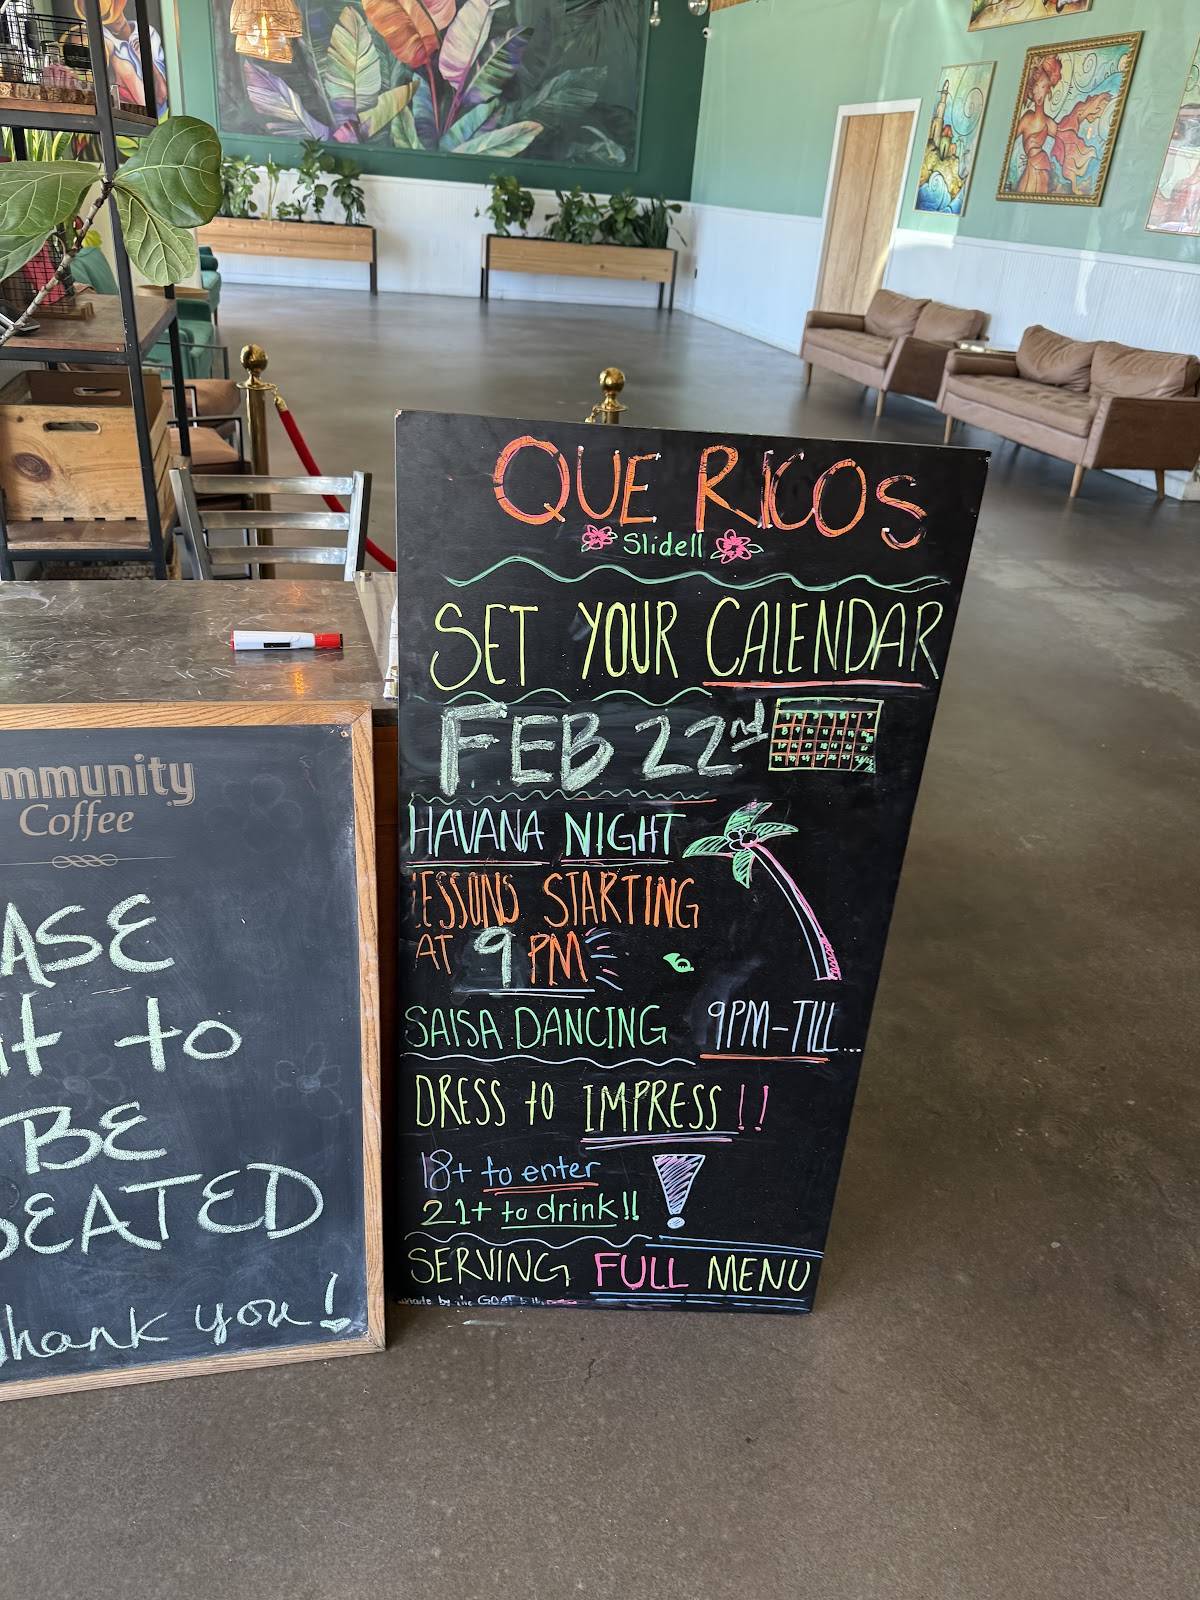 QUE RICOS
Slidell
SET YOUR CALENDAR
FEB 22nd
HAVANA NIGHT
LESSONS STARTING
AT 9 PM
SALSA DANCING 9PM-TILL...
DRESS to IMPRESS!!
18+ to enter
21+ to drink!!
SERVING FULL MENU
made by the GOAT
mmunity
Coffee
ASE
it to
BE
SEATED
Thank you!